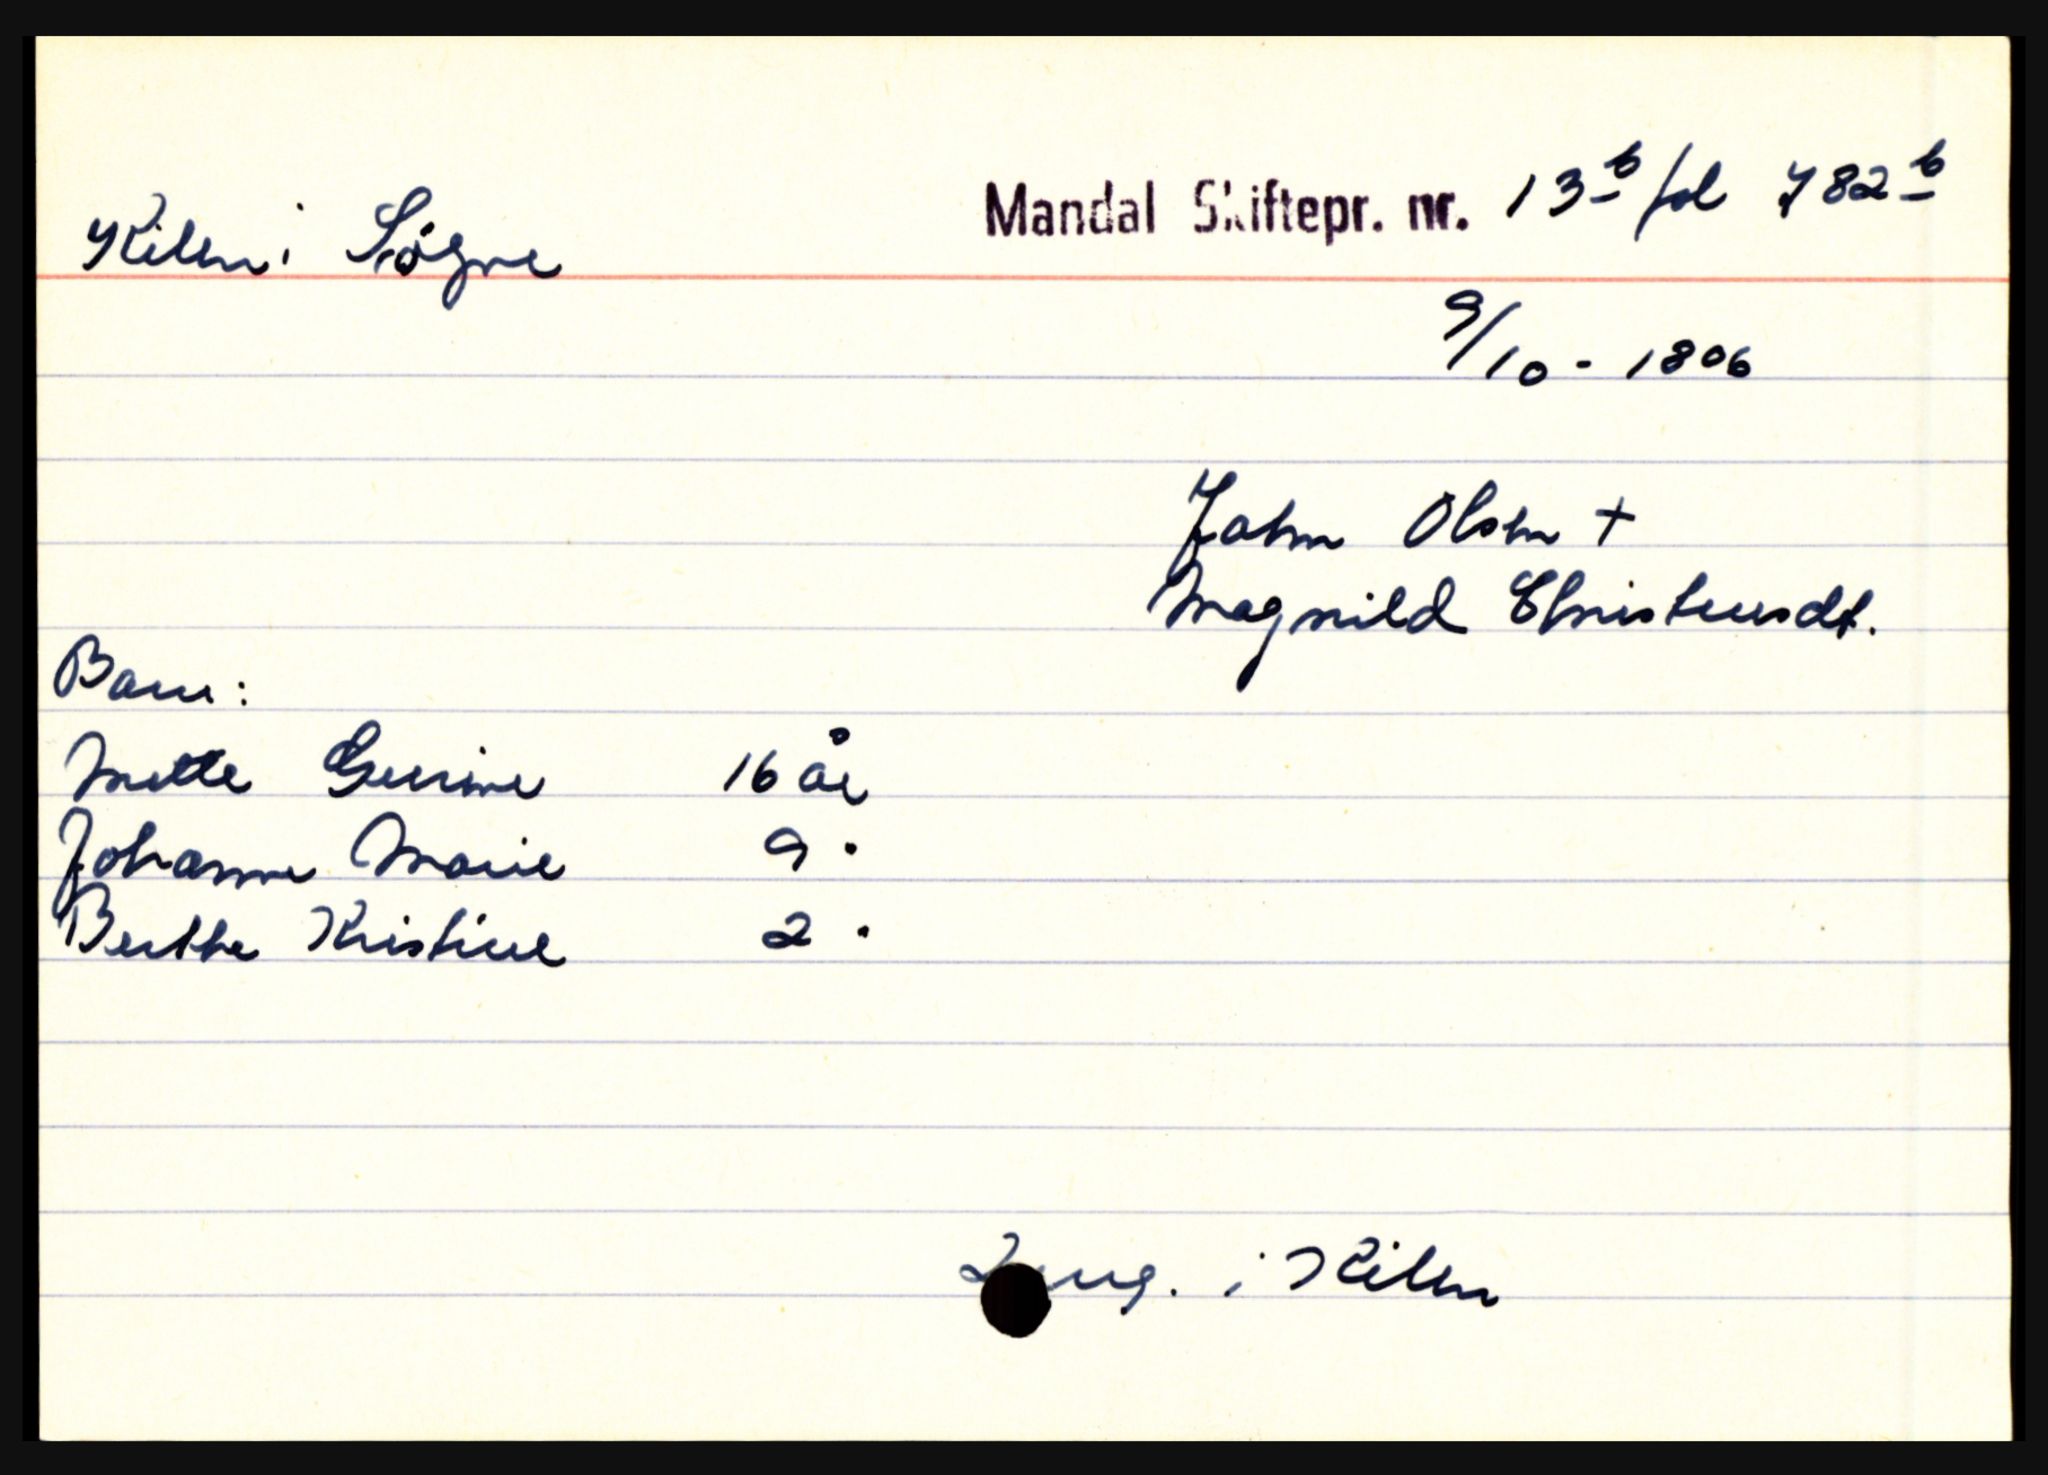 Kilen i Søgne
Mandal Skiftepr. nr. 13b fol 782b
9/10 - 1806
John Olsen +
Magnild Christensdt.
Barn:
Mette Gurine 16 år
Johanne Marie 9 "
Berthe Kristine 2 "
i Kilen